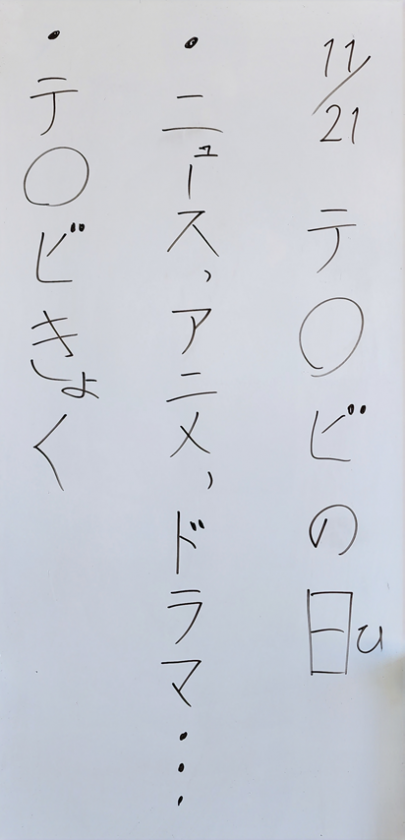 11/21 テ○ビの日ひ
・ニュース,アニメ,ドラマ・・・
・テ○ビきょく